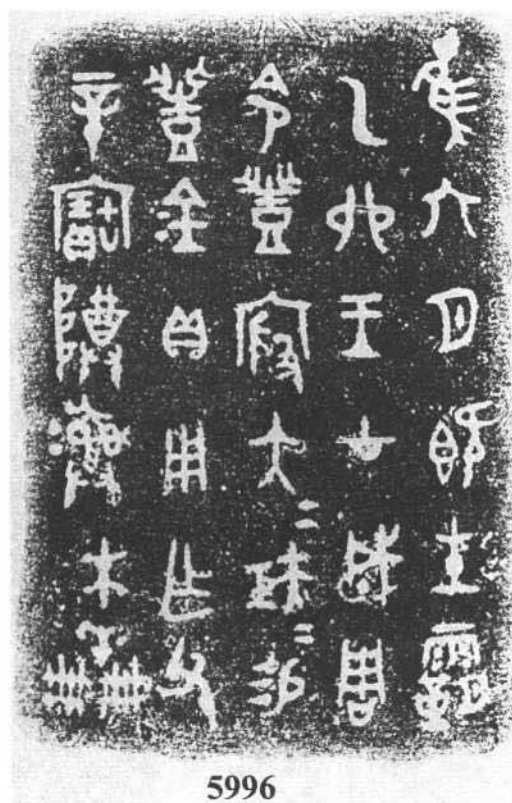 隹六月既生霸
乙卯王才成周
令豐殷大=矩=易
豐金貝用乍父
辛寶尊彝木羊冊冊
5996